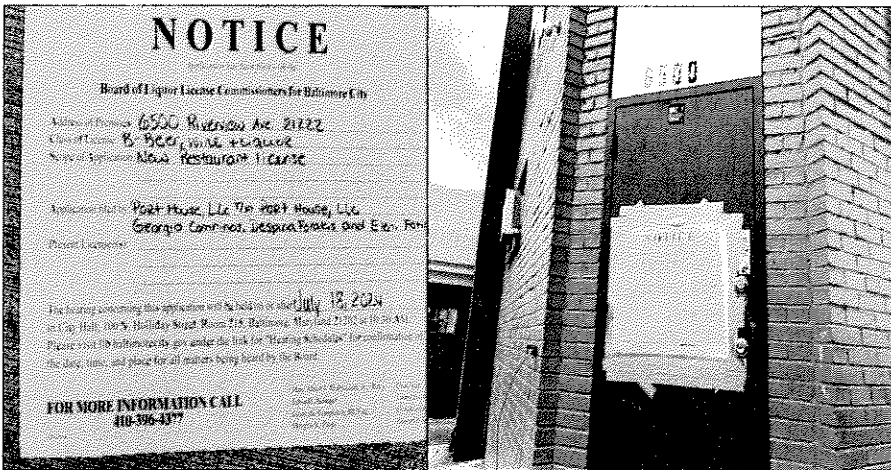 NOTICE
Board of Liquor License Commissioners for Baltimore City
Address of Premises: 6500 Riverview Ave. 21222
Class of License: B Beer, wine + Liquor
Nature of Application: New Restaurant License
Application filed by: Port House, LLC T/A Port House, LLC
Georgia Comninos, Despina
Present Licensee(s):
The hearing concerning this application will be held on or after July 18, 2024
in City Hall, 100 N. Holliday Street, Room 215, Baltimore, Maryland 21202 at 10:30 AM.
Please visit llb.baltimorecity.gov under the link for "Hearing Schedules" for confirmation of
the date, time, and place for all matters being heard by the Board.
FOR MORE INFORMATION CALL
410-396-4377
6500
NOTICE